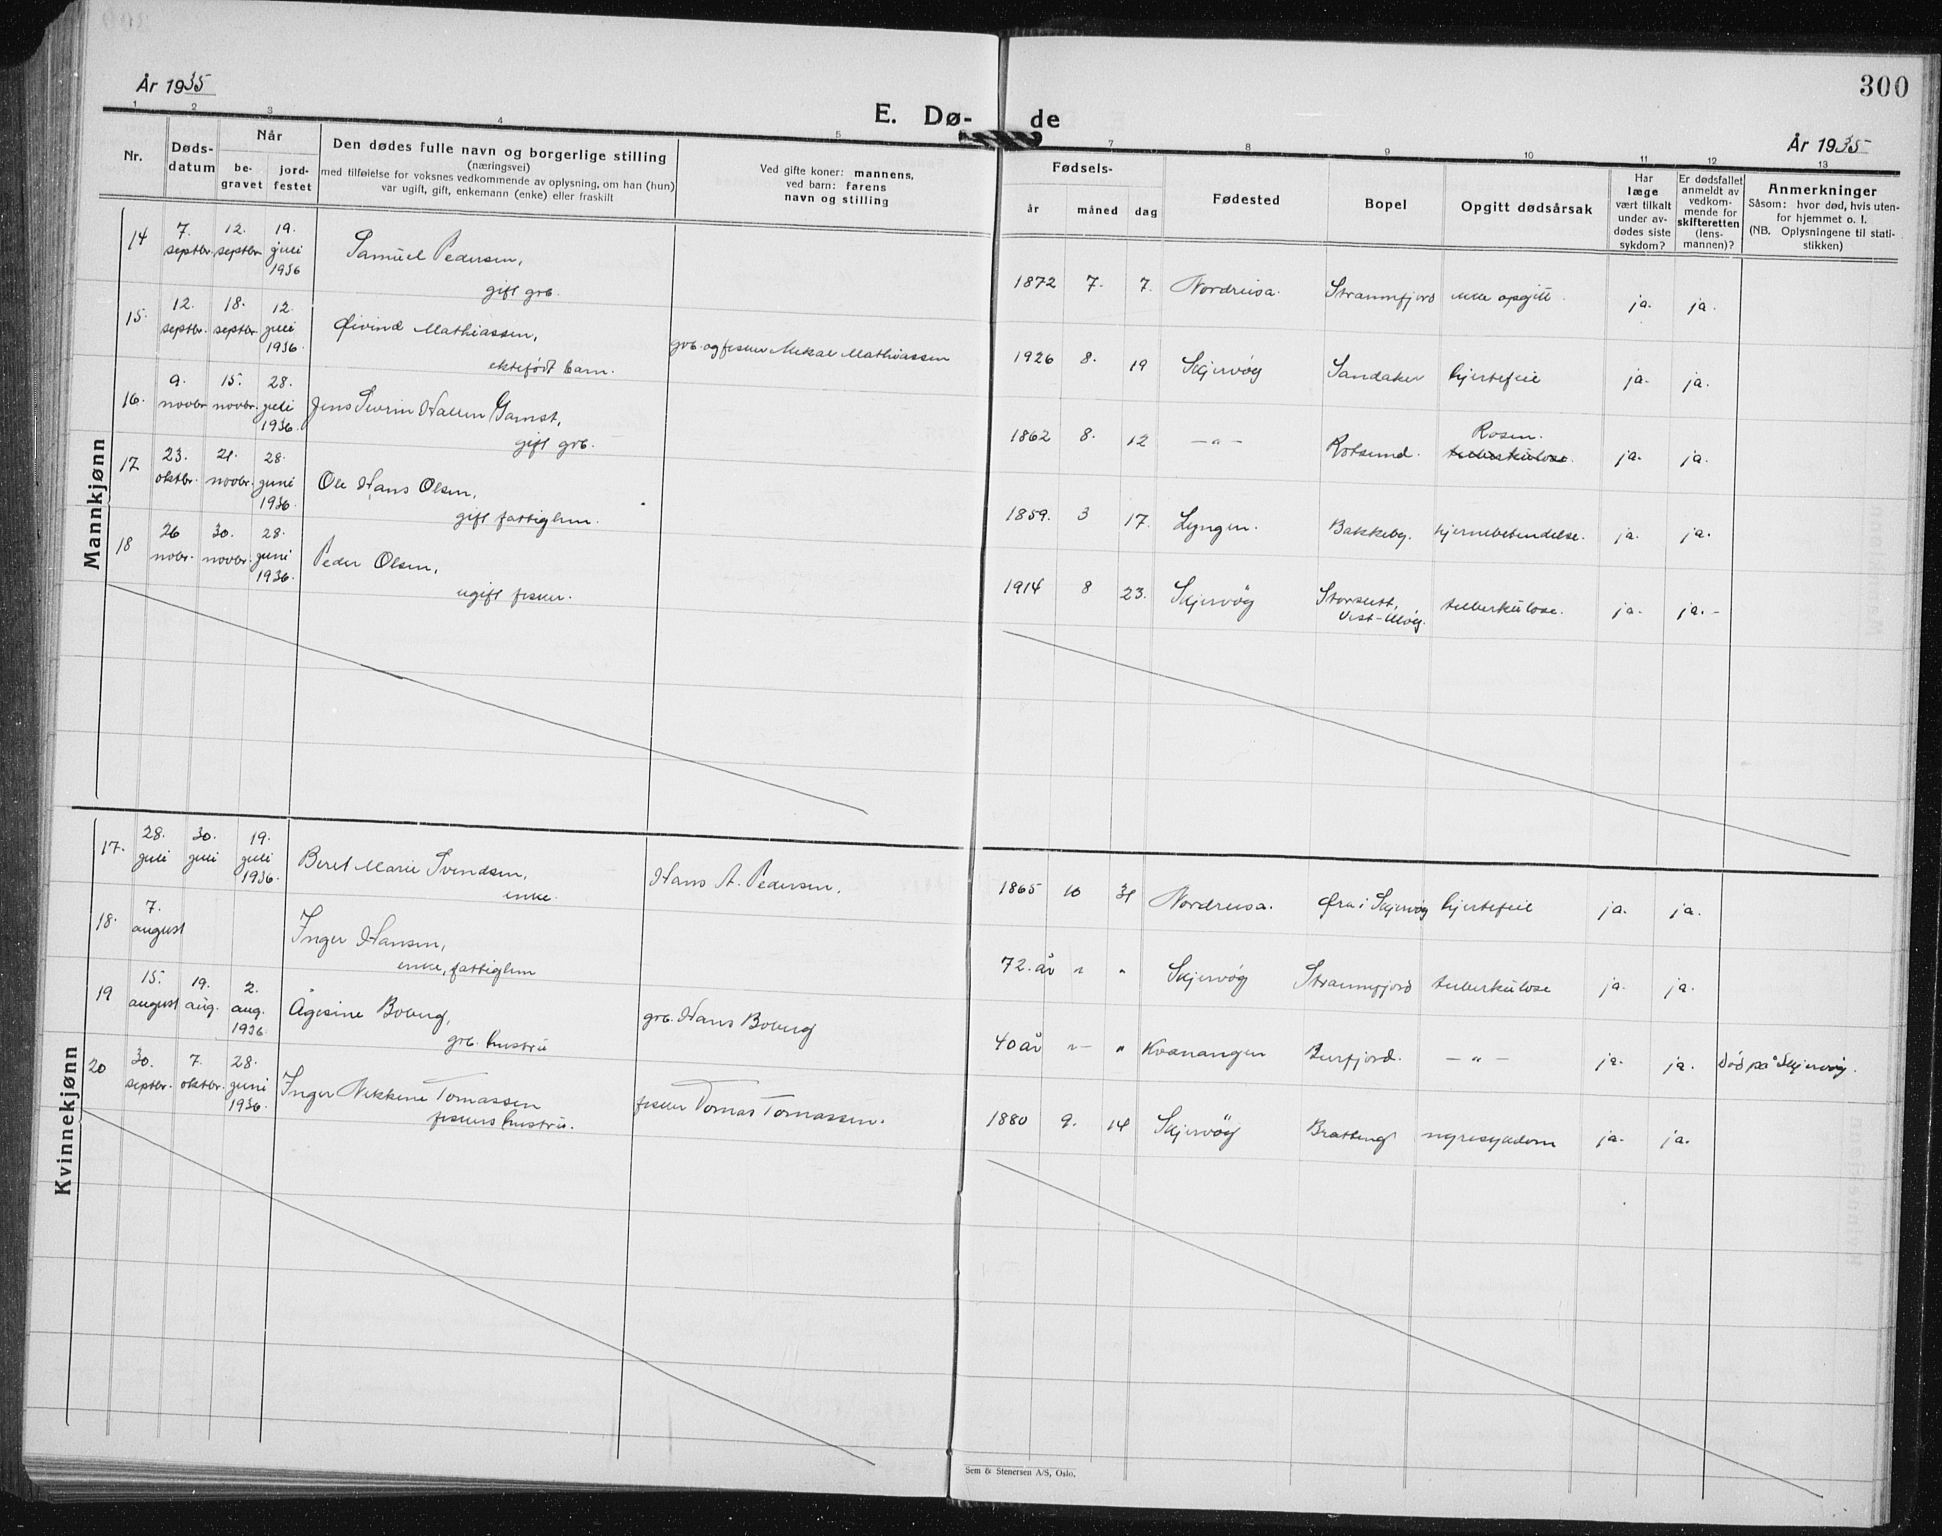 300
År 1935
E. Dø-
de
År 1935
1 2 3 4 5 7 8 9 10 11 12 13
Nr.
Døds-
datum
Når
be-
gravet
jord-
festet
Den dødes fulle navn og borgerlige stilling
(næringsvei)
med tilføielse for voksnes vedkommende av oplysning, om han (hun)
var ugift, gift, enkemann (enke) eller fraskilt
Ved gifte koner: mannens,
ved barn: farens
navn og stilling
Fødsels-
år måned dag
Fødested
Bopel
Opgitt dødsårsak
Har
læge
vært tilkalt
under av-
dødes siste
sykdom?
Er dødsfallet
anmeldt av
vedkom-
mende for
skifteretten
(lens-
mannen)?
Anmerkninger
Såsom: hvor død, hvis uten-
for hjemmet o. l.
(NB. Oplysningene til stati-
stikken)
Mannkjønn
14 7. septbr. 12. septbr. 19. juli 1936 Samuel Pedersen,
gift grb.
1872 7. 7. Nordreisa. Straumfjord ikke opgitt. ja. ja.
15. 12. septbr. 18. septbr. 12. juli 1936. Øivind Mathiassen,
ektefødt barn.
grb. og fisker Mikal Mathiassen
1926 8. 19 Skjervøy Sandaker hjertefeil ja. ja.
16. 9. novbr 15. novbr. 28. juli 1936. Jens Sevrin Hallen Gamst,
gift grb.
1862 8. 12 -"- Rotsund. Rosen. tuberkulose. ja. ja.
17 23. oktbr. 21. novbr. 28. juni 1936. Ole Hans Olsen,
gift fattiglem.
1859. 3 17. Lyngen. Bakkeby. hjernebetendelse. ja. ja.
18 26 novbr. 30. novbr. 28. juni 1936. Peder Olsen,
ugift fisker.
1914 8 23. Skjervøy Storslett, tuberkulose. ja. ja.-
Kvinnekjønn
17. 28. juli 30. juli 19. juli 1936. Beret Marie Svendsen,
enke.
Hans A. Pedersen.
1865 10 31 Nordreisa. Øra i Skjervøy hjertefeil ja. ja.
18. 7. august Inger Hansen,
enke, fattiglem
72. år " " Skjervøy Straumfjord tuberkulose ja. ja.
19 15. august 19. aug. 2. aug. 1936. Ågesine Boberg,
grb. hustru
grb. Hans Boberg
40 år "- " Kvænangen Burfjord. -"- ja. ja. død på Skjervøy.
20 30. septbr. 7. oktbr. 28. juni 1936. Inger Nikkine Tomassen
fiskers hustru.
fisker Tomas Tomassen.
1880 9. 14 Skjervøy nyresykdom ja. ja.
Sem & Stenersen A/S, Oslo.